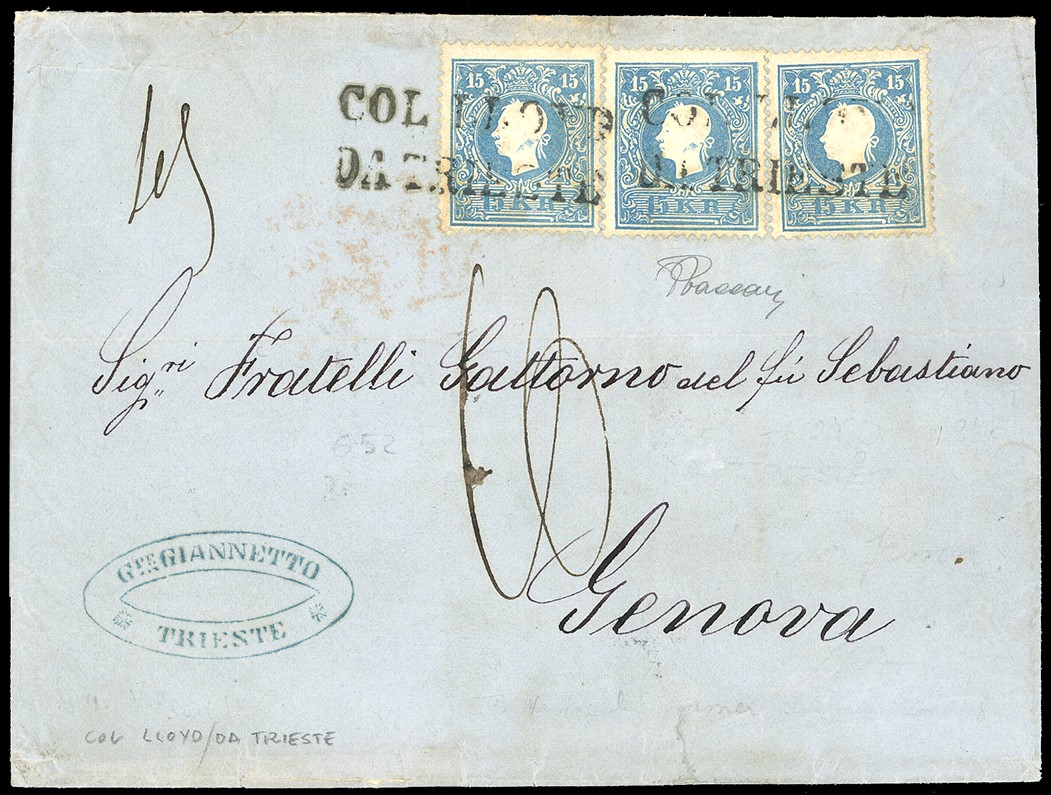 15 15 15 15 15 15
COL LLOYD COL LLOYD
DA TRIESTE DA TRIESTE
15 KR 15 KR 15 KR
Sig.ri Fratelli Gattorno del fu Sebastiano
652
Genova
GTE. GIANNETTO
TRIESTE
COL LLOYD/DA TRIESTE